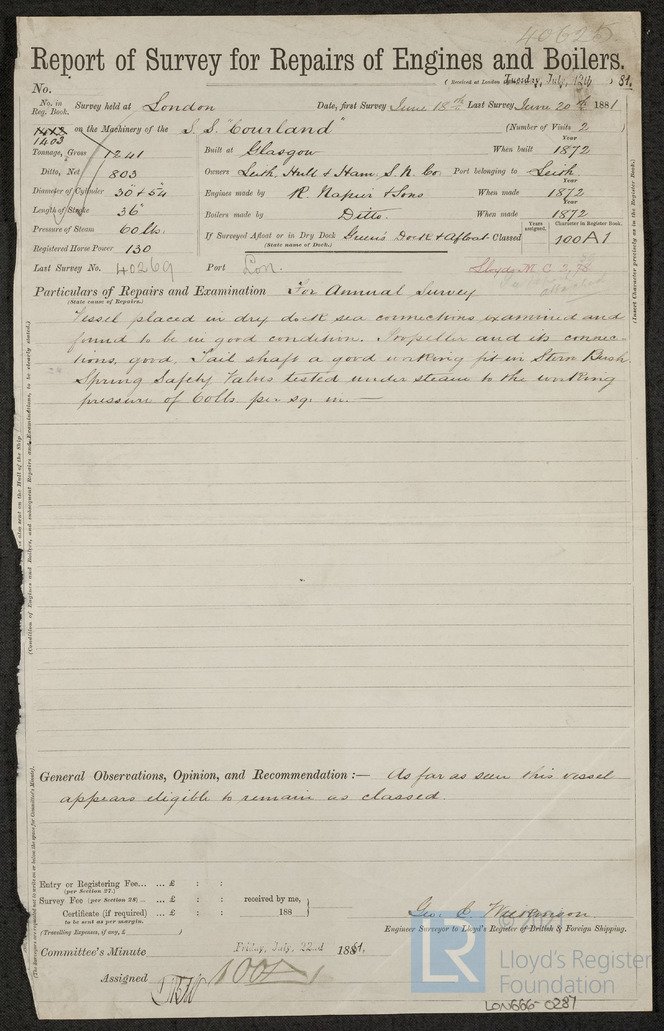 40625
Report of Survey for Repairs of Engines and Boilers.
(Received at London Tuesday, July, 12th, 81.
No.
No. in Reg. Book. Survey held at London Date, first Survey June 18th Last Survey June 20th 1881
1403 on the Machinery of the S.S. "Courland" (Number of Visits 2)
Tonnage, Gross 1241 Built at Glasgow When built Year 1872
Ditto, Net 803 Owners Leith, Hull & Ham. S. N. Co Port belonging to Leith
Diameter of Cylinder 30" & 54" Engines made by R. Napier & Sons When made Year 1872
Length of Stroke 36" Boilers made by Ditto. When made Year 1872
Pressure of Steam 60 lbs. If Surveyed Afloat or in Dry Dock Green's Dock & Afloat Classed Years assigned. Character in Register Book. 100A1
(State name of Dock.)
Registered Horse Power 130
Last Survey No. 40269 Port Lon. Lloyds M. C.
Particulars of Repairs and Examination For Annual Survey
(State cause of Repairs.)
Vessel placed in dry dock sea connections examined and
found to be in good condition. Propeller and its connec-
tions, good, Tail shaft a good working fit in Stern Bush
Spring Safety Valves tested under steam to the working
pressure of 60lbs per sq. in. —
General Observations, Opinion, and Recommendation :— As far as seen this vessel
appears eligible to remain as classed.
Entry or Registering Fee... ... £ : :
(per Section 27.)
Survey Fee (per Section 28) ... ... £ : : received by me,
Certificate (if required) ... £ : : 188
to be sent as per margin.
(Travelling Expenses, if any, £ )
Geo. C. Wilkinson.
Engineer Surveyor to Lloyd's Register of British & Foreign Shipping.
Committee's Minute Friday, July, 22nd 1881.
Assigned 100A1
(Insert Character precisely as in the Register Book.)
(Condition of Engines and Boilers, and subsequent Repairs and Examinations, to be clearly stated.)
LR
Lloyd's Register
Foundation
LON666-0287